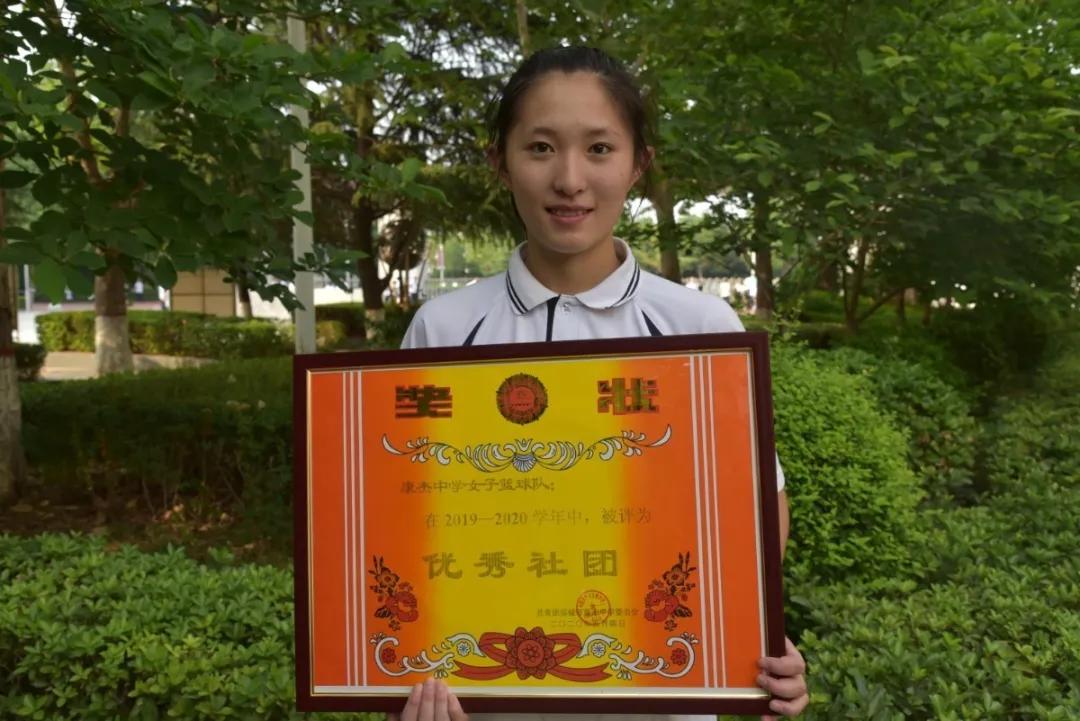 奖 状
康杰中学女子篮球队：
在 2019—2020 学年中，被评为
优秀社团
二〇二〇年五月